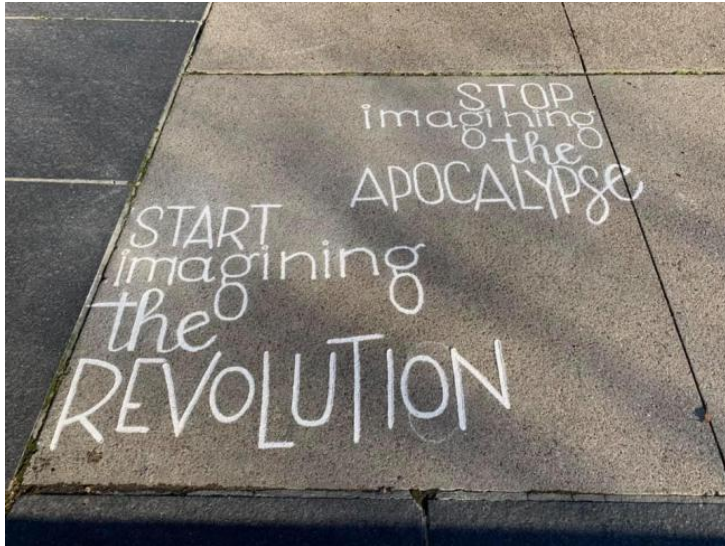 STOP
imagining
the
APOCALYPSe
START
imagining
the
REVOLUTION